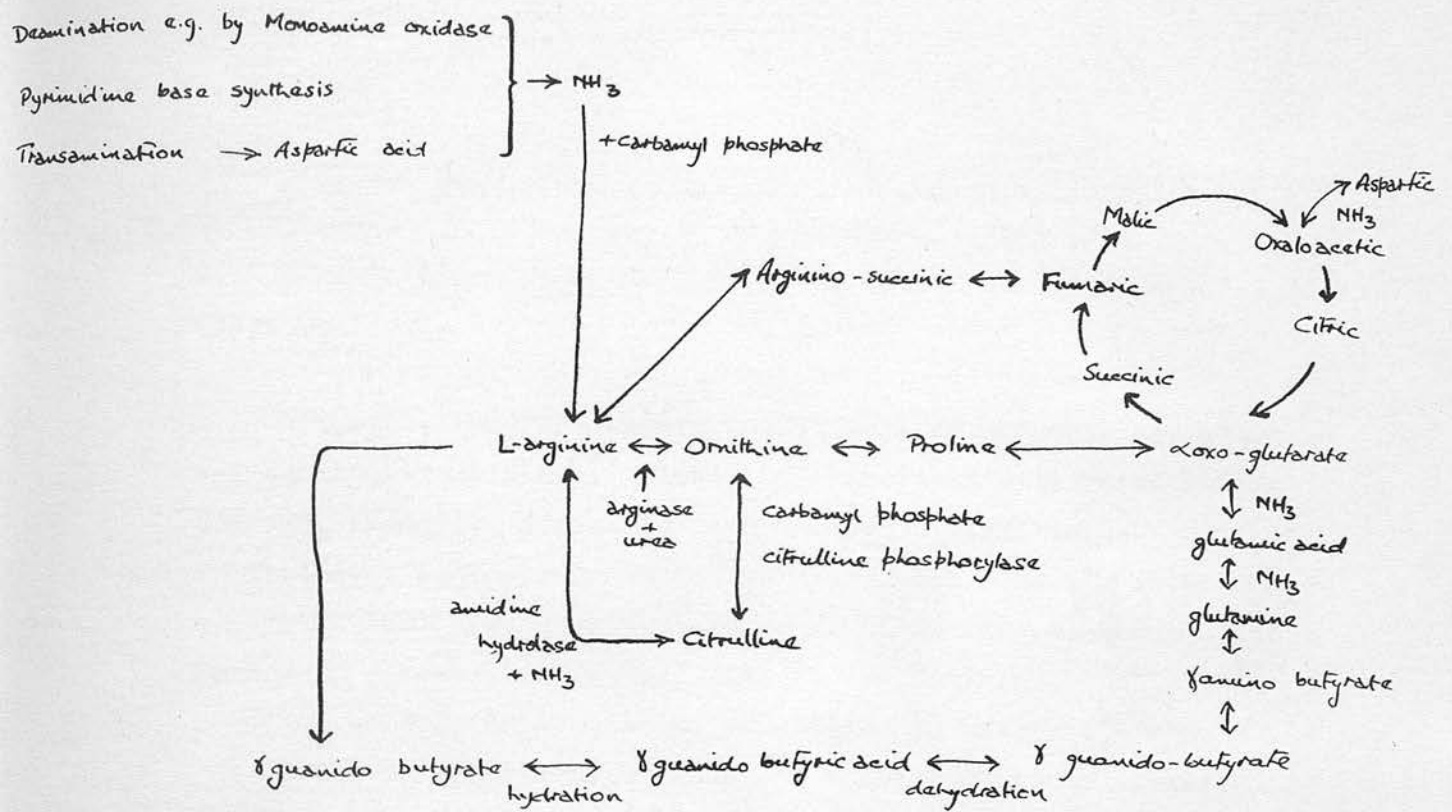 Deamination e.g. by Monoamine oxidase
Pyrimidine base synthesis
Transamination → Aspartic acid
→ NH3
+ Carbamyl phosphate
Aspartic
NH3
Malic
Oxaloacetic
Arginino-succinic ↔ Fumaric
Citric
Succinic
L-arginine ↔ Ornithine ↔ Proline ↔ αoxo-glutarate
arginase
+
urea
carbamyl phosphate
citrulline phosphorylase
NH3
glutamic acid
NH3
glutamine
amidine
hydrolase
+ NH3
Citrulline
γamino butyrate
γguanido butyrate ↔ γguanido butyric acid ↔ γ guanido-butyrate
hydration
dehydration